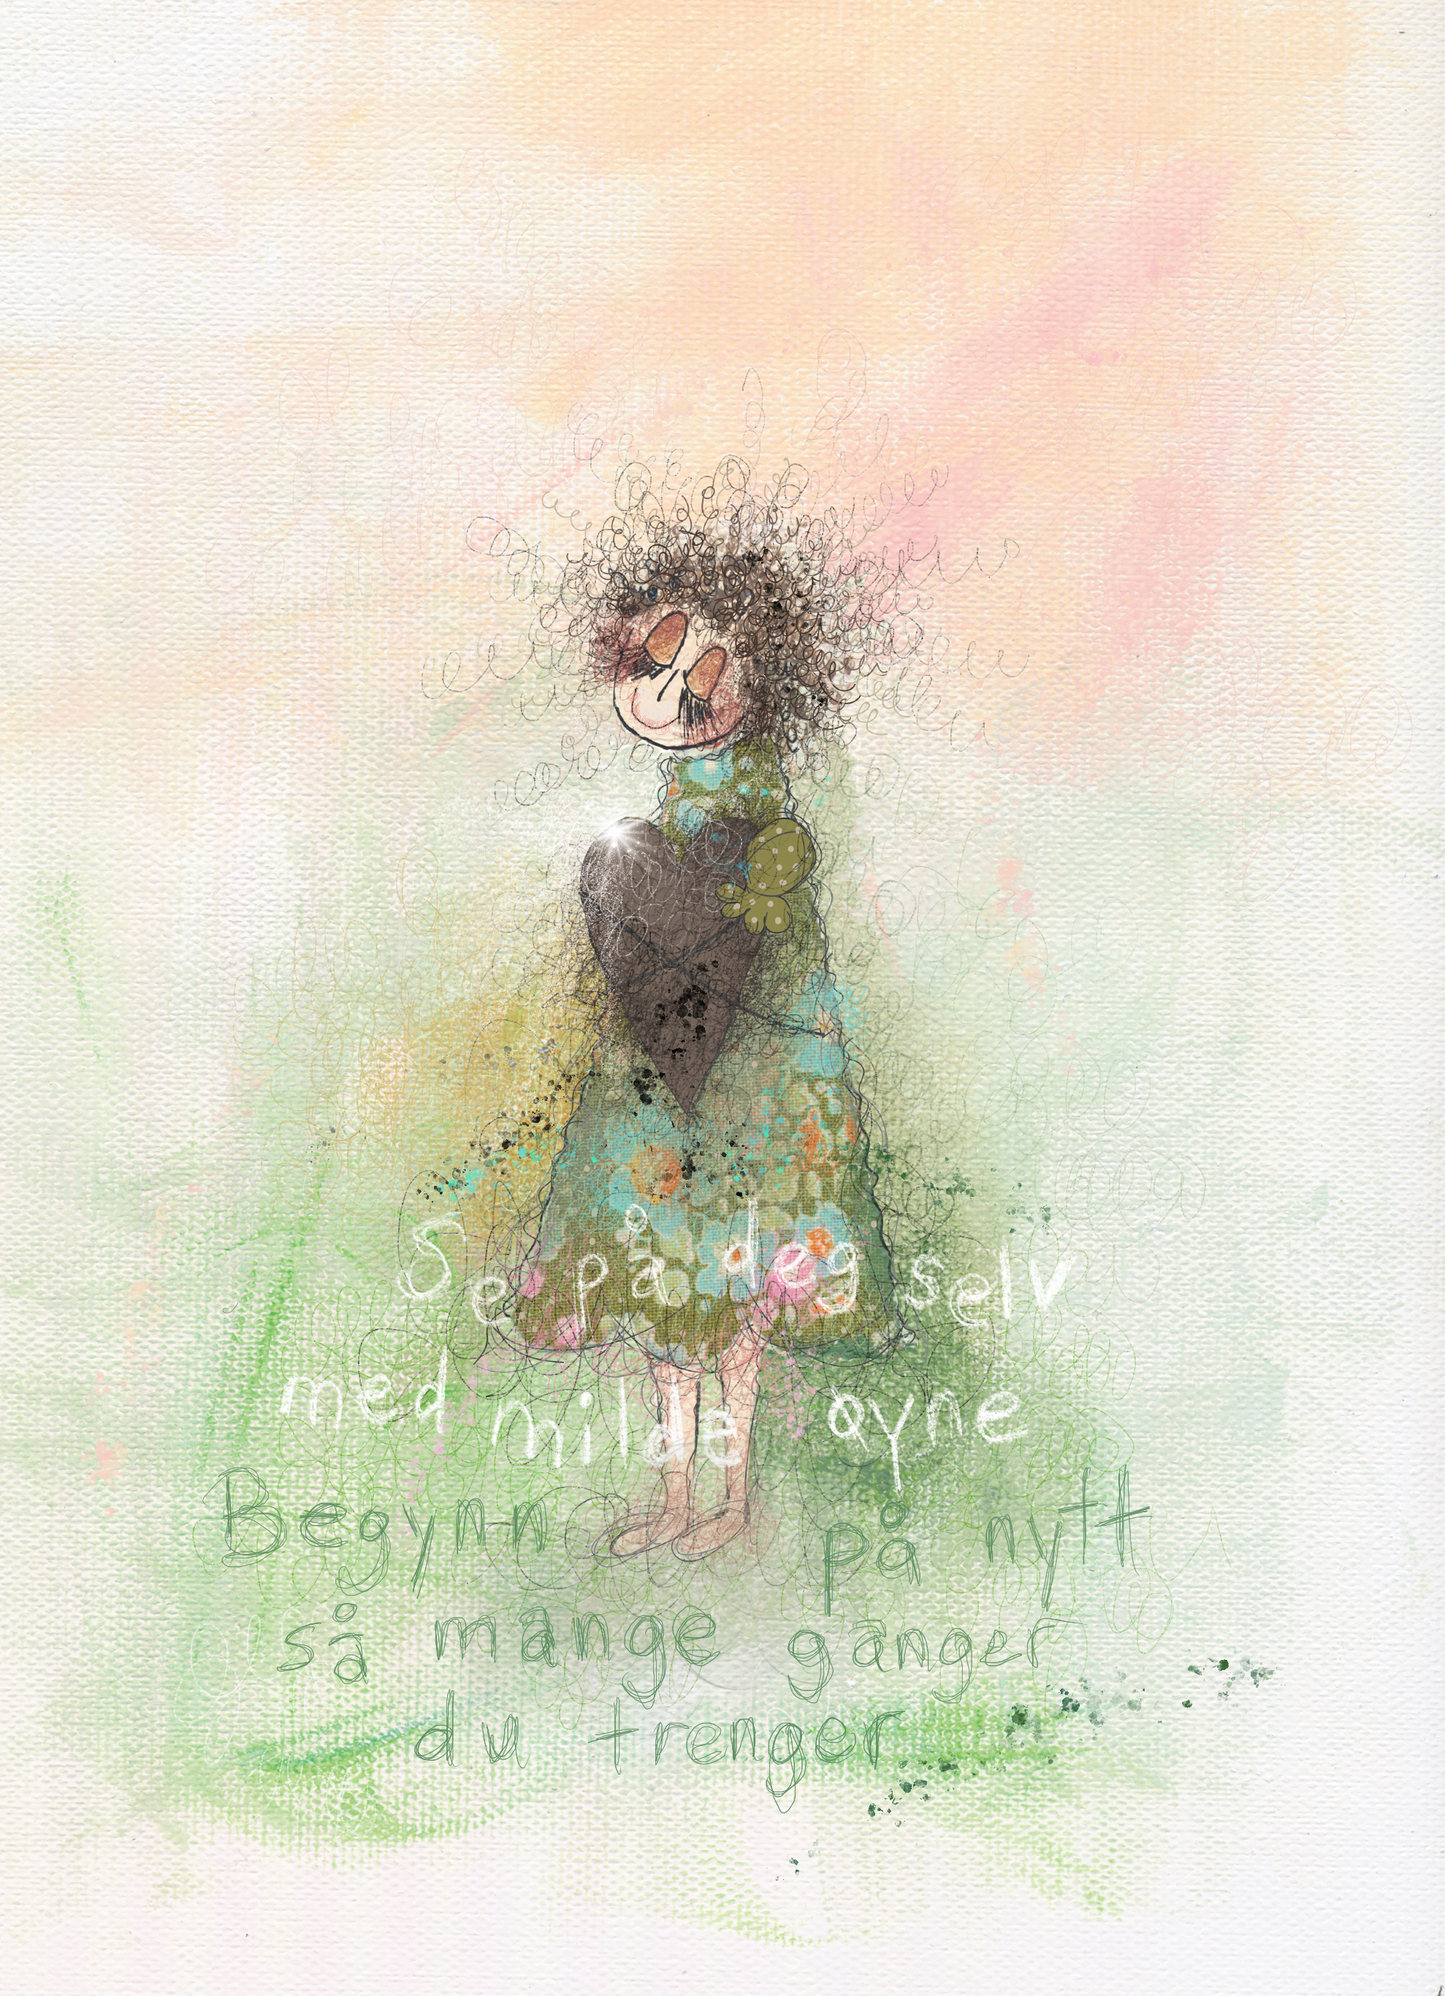 Se på deg selv
med milde øyne
Begynn på nytt
så mange ganger
du trenger